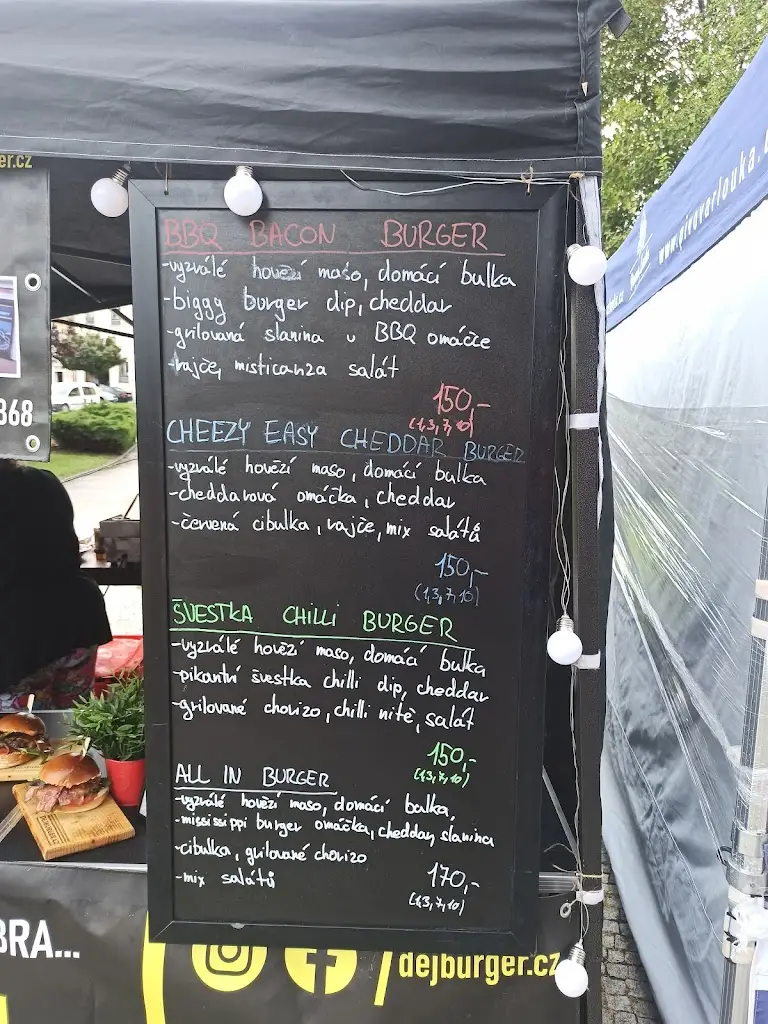 er.cz
BBQ BACON BURGER
-vyzrálé hovězí maso, domácí bulka
-biggy burger dip, cheddar
-grilovaná slanina v BBQ omáčce
-rajče, misticanza salát
150,-
(1,3,7,10)
CHEEZY EASY CHEDDAR BURGER
-vyzrálé hovězí maso, domácí bulka
-cheddarová omáčka, cheddar
-červená cibulka, rajče, mix salátů
150,-
(1,3,7,10)
ŠVESTKA CHILLI BURGER
-vyzrálé hovězí maso, domácí bulka
-pikantní švestka chilli dip, cheddar
-grilované chorizo, chilli nitě, salát
150,-
(1,3,7,10)
ALL IN BURGER
-vyzrálé hovězí maso, domácí bulka,
-mississippi burger omáčka, cheddar, slanina
-cibulka, grilované chorizo
-mix salátů
170,-
(1,3,7,10)
368
BRA...
dejburger.cz